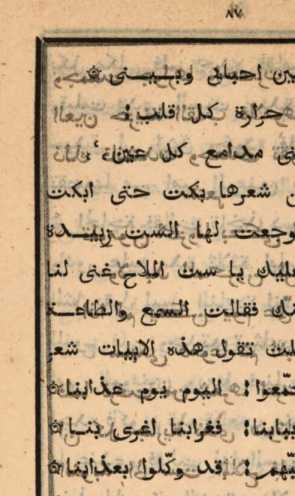 ٨٧
بين احبابى وبـيـنى
حرارة كل قلب
مدامع كل عين
شعرها بكت حتى ابكت
وجعت لها الست زبيـدة
عليك يا ست الملاح غنى لنا
فقالت السمع والطاعـة
تقول هذه الابيات شعر
اليوم يوم عذابنا
فغرابنا لغرى بنـا
قد وكّلوا بعذابنا